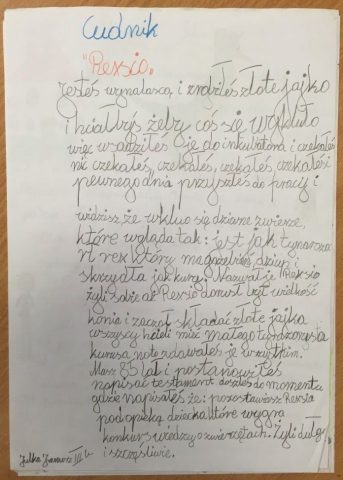 Cudnik
"Rexio"
Jesteś wynalascą i zrobiłeś złote jajko
i hiałbyś żeby coś się wykluło
więc wsadziłeś je do inkubatora i czekałeś
nic czekałeś, czekałeś, czekałeś czekałeś i
pewnego dnia przyszłeś do pracy i
widzisz, że wkluo się dziwne zwierze,
które wygląda tak: jest jak tyranozaur
rex który ma dziup i
skrzydła jak kury. Nazwał je Reksio
żyli sobie aż Rexio dorusł był wielkość
konia i zaczoł składać złote jajka
wszyscy hcieli mieć małego tyranozaura
kurasa, note rozdowałeś je wszytkim.
Masz 85 lat i postanowiłeś
napisać testament doszłeś do momentu
gdzie napisałeś że: pozostawiasz Rexia
pod opieką dziecka które wygra
konkurs wiedzy o zwierzętach. Żyli długo
i szczęśliwie.
Julka III b